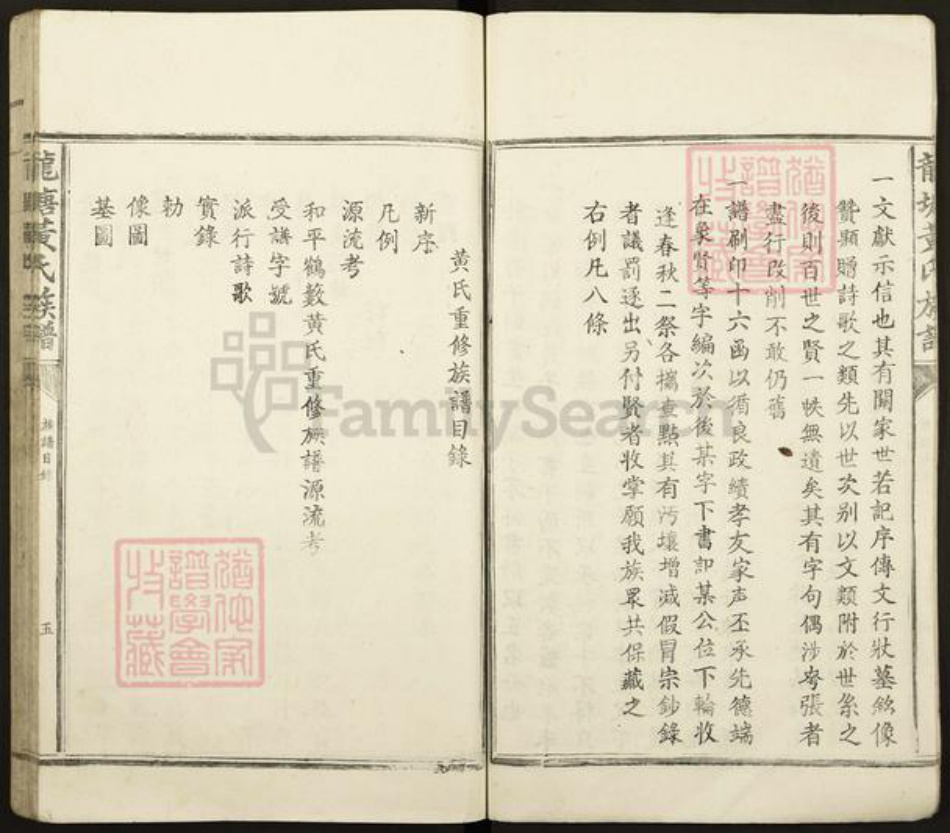 一文獻示信也其有關家世若記序傳文行狀墓銘像
贊顯贈詩歌之類先以世次別以文類附於世系之
後則百世之賢一帙無遺矣其有字句偶涉夸張者
盡行改削不敢仍舊
一譜刷印十六函以循良政績孝友家声丕承先德端
在象賢等字編次於後某字下書卽某公位下輪收
逢春秋二祭各攜查點其有汚壞增減假冒宗鈔錄
者議罰逐出另付賢者收掌願我族眾共保藏之
右例凡八條
黃氏重修族譜目錄
新序
凡例
源流考
和平鶴藪黃氏重修族譜源流考
受謙字號
派行詩歌
實錄
勅
像圖
基圖
龍塘黃氏族譜
族譜目錄
五
譜學會
收藏
FamilySearch